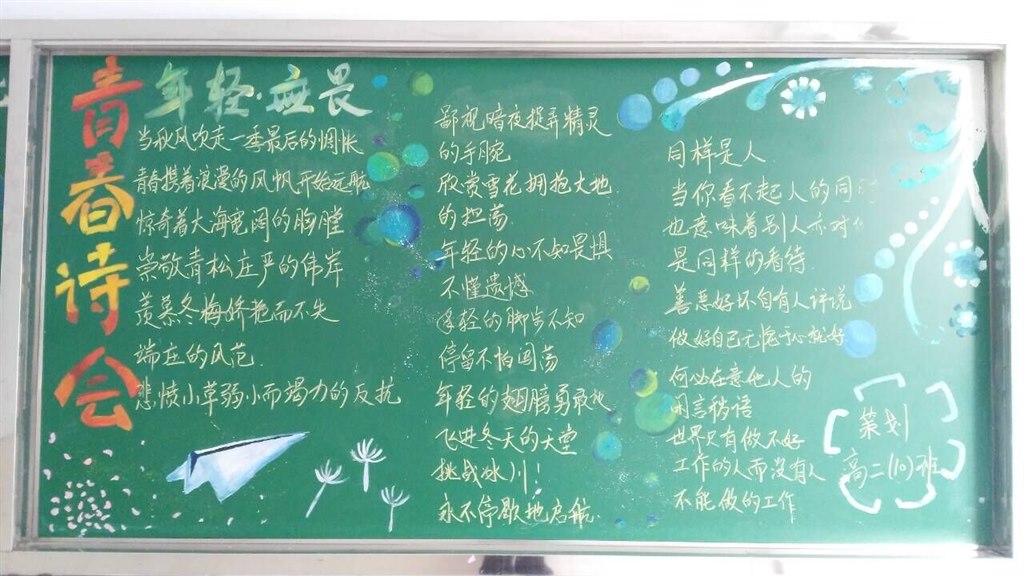 青春诗会
年轻·无畏
当秋风吹走一季最后的惆怅
青春携着浪漫的风帆开始远航
惊奇着大海宽阔的胸膛
崇敬青松庄严的伟岸
羡慕冬梅娇艳而不失
端庄的风范
悲愤小草弱小而竭力的反抗
鄙视暗夜捉弄精灵
的手腕
欣赏雪花拥抱大地
的坦荡
年轻的心不知畏惧
不懂遗憾
年轻的脚步不知
停留不怕闯荡
年轻的翅膀勇敢地
飞进冬天的天堂
挑战冰川！
永不停歇地启航
同样是人
当你看不起人的同
也意味着别人亦对你
是同样的看待
善恶好坏自有人评说
做好自己无愧于心就好
何必在意他人的
闲言碎语
世界只有做不好
工作的人而没有人
不能做的工作
策划
高二(10)班